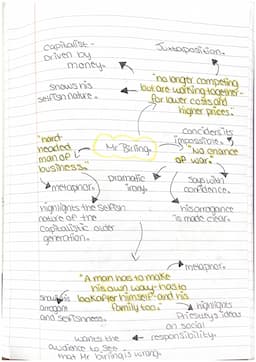 capitalist -
driven by
money.
Juxtaposition.
shows his
selfish nature.
"no longer competing
but are working together -
for lower costs and
higher prices."
considers its
impossible.
"hard
headed
man of
business."
Mr Birling.
"No chance
of war."
metaphor.
dramatic
irony.
says with
confidence.
highlights the selfish
nature of the
capitalistic older
generation.
his arrogance
is made clear.
metaphor.
"A man has to make
his own way - has to
look after himself - and his
family too."
shows his
arrogant
and selfishness.
highlights
Priestley's ideas
on social
responsibility.
wants the
audience to see
that Mr birling is wrong.